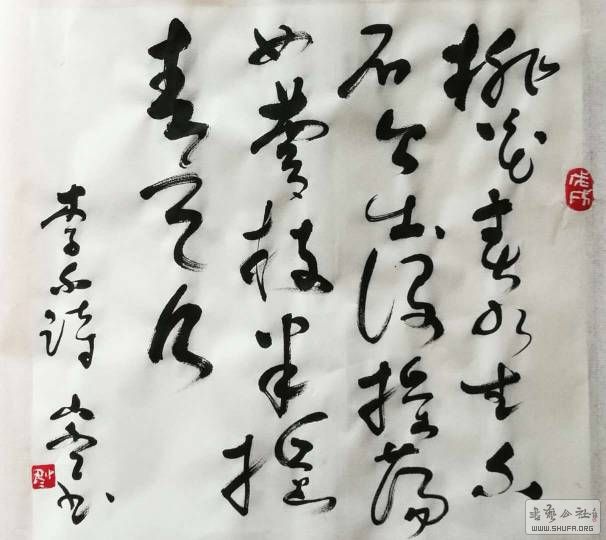 桃花春水生白
石今出没摇荡
女萝枝半摇
青天月
李白诗 山 书
书艺公社
WWW.SHUFA.ORG